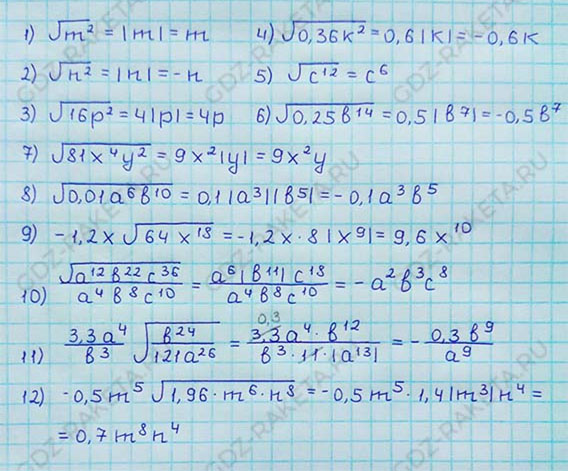 1) √m² = |m| = m 4) √0,36к² = 0,6|к| = -0,6к
2) √n² = |n| = -n 5) √c¹² = c⁶
3) √16p² = 4|p| = 4p 6) √0,25в¹⁴ = 0,5|в⁷| = -0,5в⁷
7) √81x⁴y² = 9x²|y| = 9x²y
8) √0,01a⁶в¹⁰ = 0,1|a³||в⁵| = -0,1a³в⁵
9) -1,2x√64x¹⁸ = -1,2x·8|x⁹| = 9,6x¹⁰
10) √a¹²в²²c³⁶ / a⁴в⁸c¹⁰ = a⁶|в¹¹|c¹⁸ / a⁴в⁸c¹⁰ = -a²в³c⁸
11) 3,3a⁴ / в³ √в²⁴ / 121a²⁶ = 0,3 3,3a⁴·в¹² / в³·11·|a¹³| = - 0,3в⁹ / a⁹
12) -0,5m⁵√1,96·m⁶·n⁸ = -0,5m⁵·1,4|m³|n⁴ =
= 0,7m⁸n⁴
GDZ-RAKETA.RU